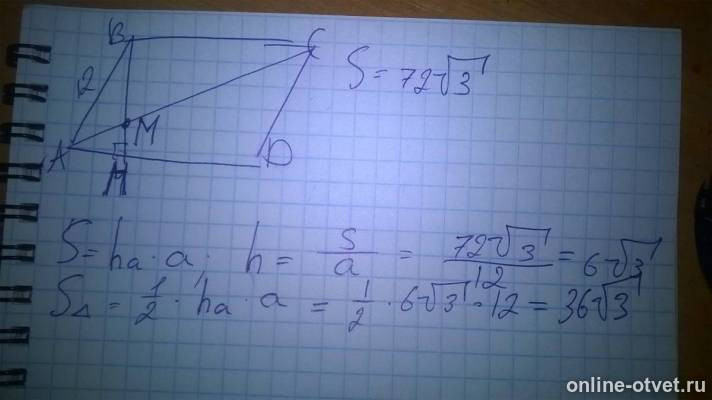 B C
2
S = 72√3
M
A D
H
S = ha · a; h = S/a = 72√3/12 = 6√3
S△ = 1/2 · ha · a = 1/2 · 6√3 · 12 = 36√3
online-otvet.ru